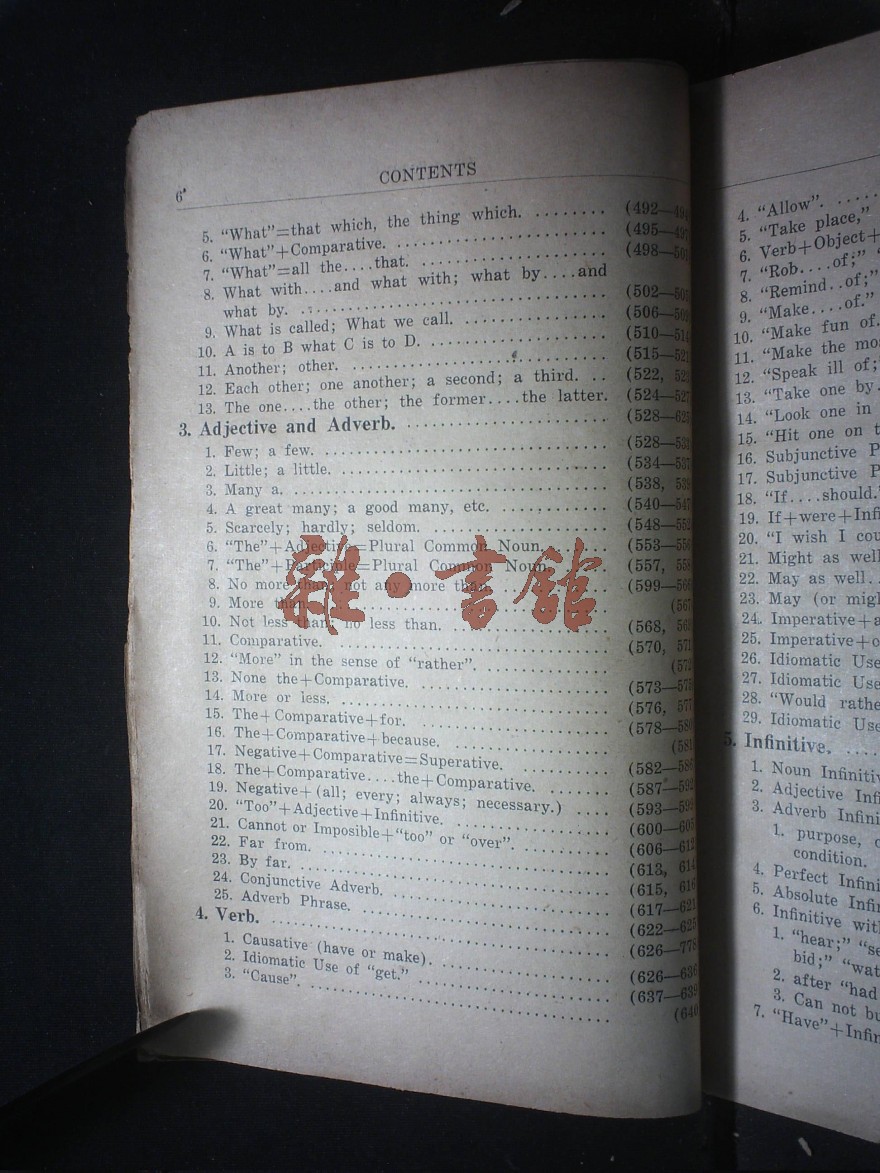 6
CONTENTS
5. “What”=that which, the thing which. ........ (492—
6. “What”+Comparative. .................... (495—
7. “What”=all the....that. .................. (498—
8. What with....and what with; what by....and
what by. ........................... (502—
9. What is called; What we call. .............. (506—
10. A is to B what C is to D. ................. (510—
11. Another; other. ........................ (515—
12. Each other; one another; a second; a third. .. (522,
13. The one....the other; the former....the latter. (524—
3. Adjective and Adverb. .................... (528—
1. Few; a few. ............................ (528—
2. Little; a little. .......................... (534—
3. Many a. ............................... (538,
4. A great many; a good many, etc. .......... (540—
5. Scarcely; hardly; seldom. ................. (548—
6. “The”+Adjective=Plural Common Noun. ...... (553—
7. “The”+Participle=Plural Common Noun. ...... (557,
8. No more than; not any more than. .......... (599—
9. More than. ............................
10. Not less than; no less than. ............... (568,
11. Comparative. .......................... (570,
12. “More” in the sense of “rather”. ...........
13. None the+Comparative. .................. (573—
14. More or less. .......................... (576,
15. The+Comparative+for. ................... (578—
16. The+Comparative+because. ..............
17. Negative+Comparative=Superative. ......... (582—
18. The+Comparative....the+Comparative. ...... (587—
19. Negative+(all; every; always; necessary.) .... (593—
20. “Too”+Adjective+Infinitive. ............... (600—
21. Cannot or Imposible+“too” or “over”. ....... (606—
22. Far from. ............................. (613,
23. By far. ............................... (615,
24. Conjunctive Adverb. .................... (617—
25. Adverb Phrase. ........................ (622—
4. Verb. ................................. (626—
1. Causative (have or make). ................ (626—
2. Idiomatic Use of “get.” ................... (637—
3. “Cause”. ..............................
雜·書館
4. “Allow”. .....
5. “Take place,”
6. Verb+Object+
7. “Rob....of;”
8. “Remind..of;”
9. “Make....of.”
10. “Make fun of.
11. “Make the
12. “Speak ill of;
13. “Take one by.
14. “Look one in
15. “Hit one on
16. Subjunctive
17. Subjunctive
18. “If....should.
19. If+were+
20. “I wish I
21. Might as well
22. May as well..
23. May (or
24. Imperative+
25. Imperative+
26. Idiomatic Use
27. Idiomatic Use
28. “Would
29. Idiomatic Use
5. Infinitive. ....
1. Noun
2. Adjective
3. Adverb
1. purpose,
condition.
4. Perfect
5. Absolute
6. Infinitive
1. “hear;”
bid;”
2. after “had
3. Can not
7. “Have”+